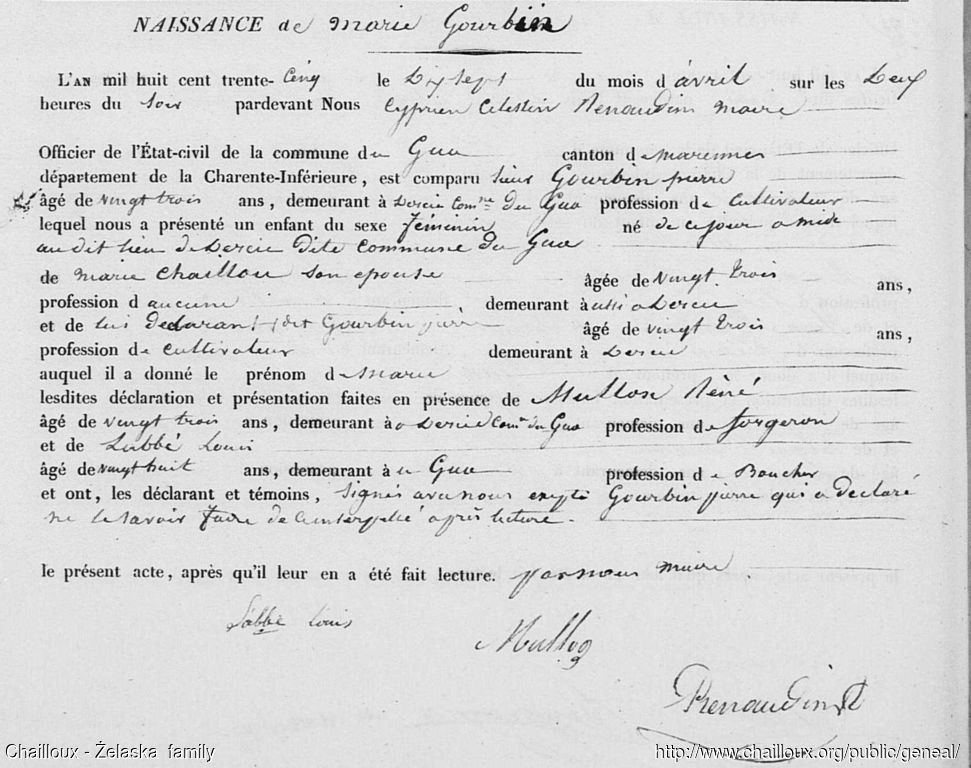 NAISSANCE de marie Gourbin
L'AN mil huit cent trente- Cinq le Dix sept du mois d'avril sur les Deux
heures du Soir pardevant Nous Cyprien Celestin Renaudin maire
Officier de l'État-civil de la commune du Gua canton de marennes
département de la Charente-Inférieure, est comparu sieur Gourbin pierre
âgé de vingt trois ans, demeurant à Dercie Comne du Gua profession de Cultivateur
lequel nous a présenté un enfant du sexe féminin né de ce jour a midi
au dit lieu de Dercie dite Commune du Gua
de marie Chaillou son epouse âgée de vingt trois ans,
profession d aucune demeurant à aussi a Dercie
et de lui declarant dit Gourbin pierre âgé de vingt trois ans,
profession de Cultivateur demeurant à Dercie
auquel il a donné le prénom de marie
lesdites déclaration et présentation faites en présence de Mullon Réné
âgé de vingt trois ans, demeurant à Dercie Comne du Gua profession de forgeron
et de Labbé Louis
âgé de vingt huit ans, demeurant à u Gua profession de Boucher
et ont, les déclarant et témoins, Signés avec nous excepté Gourbin pierre qui a declaré
ne le savoir faire de ce interpellé après lecture.
le présent acte, après qu'il leur en a été fait lecture. par nous maire
Labbé Louis
Mullon
Renaudin
Chailloux - Żelaska family http://www.chailloux.org/public/geneal/